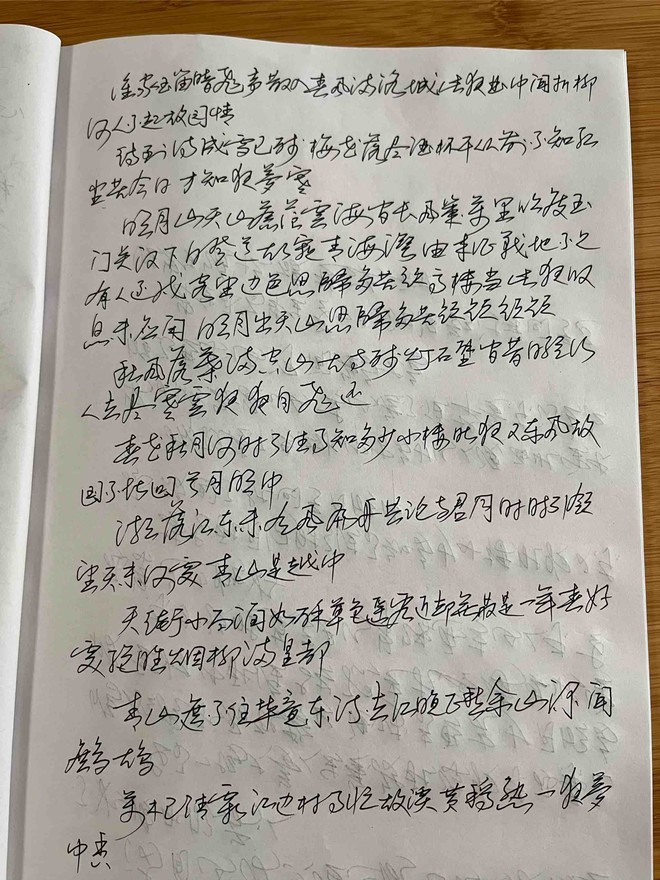 谁家玉笛暗飞声散入春风满洛城此夜曲中闻折柳
何人不起故园情
诗
坐共今日才知夜梦寒
明月出天山苍茫云海间长风几万里吹度玉
门关汉下白登道胡窥青海湾由来征战地不见
有人还戍客望边色思归多苦颜高楼当此夜叹
息未应闲明月出天山思归多苦颜
秋风落叶满空山古寺残灯石壁间昔日经行
人去尽寒云夜夜自飞还
春花秋月何时了往事知多少小楼昨夜又东风故
国不堪回首月明中
落江东未共论
青山是越中
天街小雨润如酥草色遥看近却无最是一年春好
处绝胜烟柳满皇都
青山遮不住毕竟东流去江晚正愁余山深闻
鹧鸪
一夜梦
中香